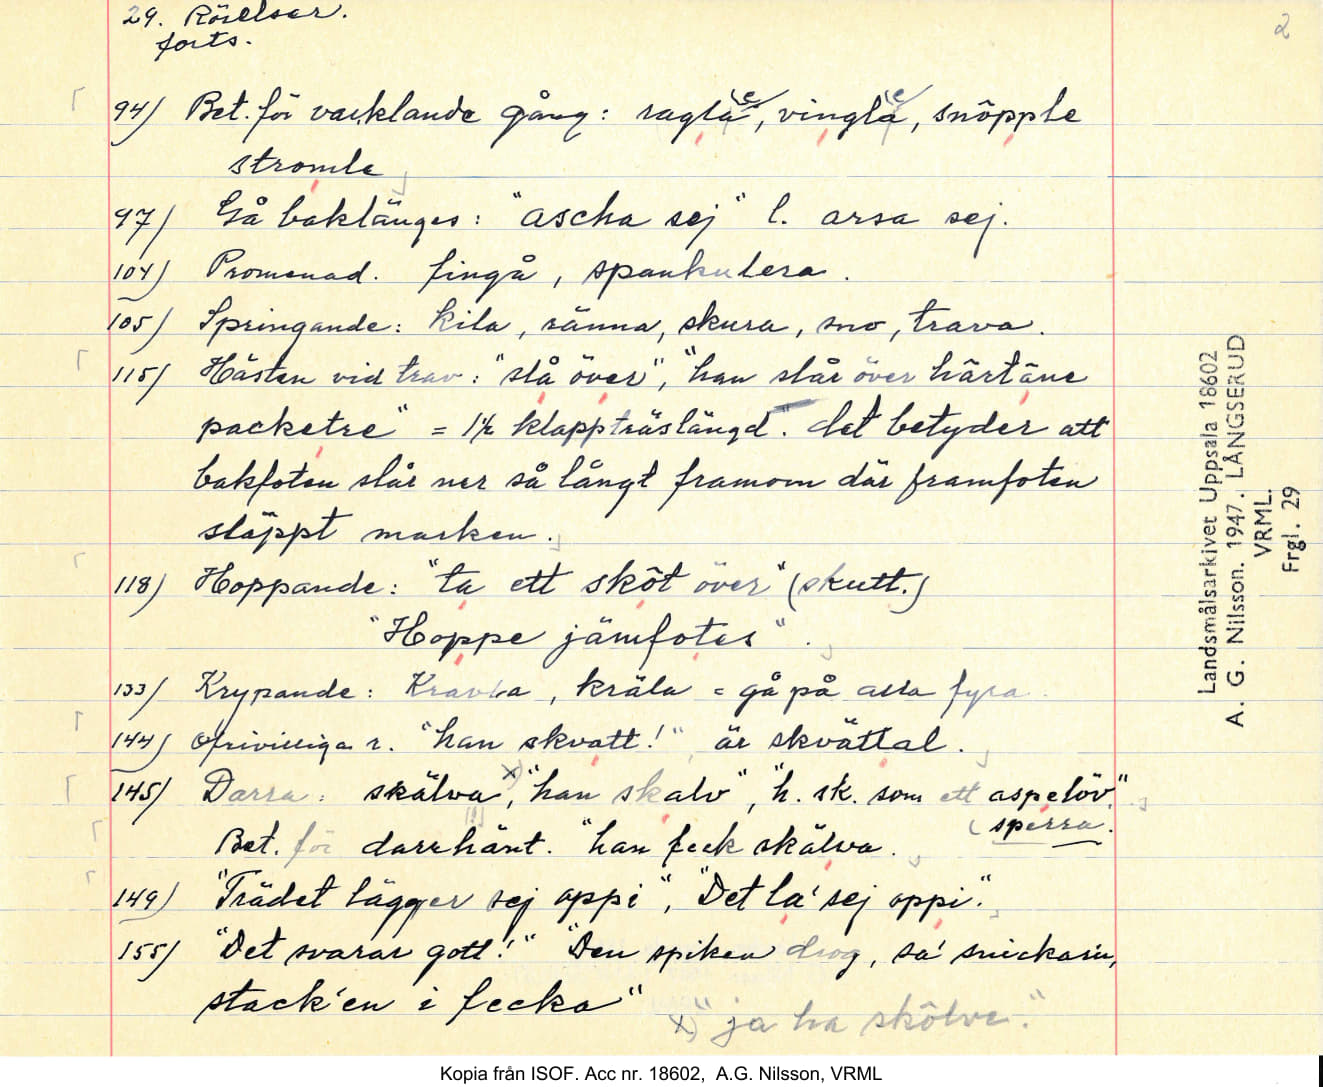 29. Rörelser.
forts.
2
94) Bet. för vacklande gång: ragla, vingla, snöpple
stromla
97) Gå baklänges: "ascha sej" l. arsa sej.
104) Promenad. fingå, spankulera.
105) Springande: kila, ränna, skura, sno, trava.
115) Hästen vid trav: "slå över", "han slår över härtäne
packetre" = 1½ klappträslängd". det betyder att
bakfoten slår ner så långt framom där framfoten
släppt marken.
118) Hoppande: "ta ett sköt över" (skutt.)
"Hoppe jämfotes".
133) Krypande: Kravla, kräla = gå på alla fyra.
144) Ofrivilliga r. "han skvatt!", är skvättal.
145) Darra: skälva x), "han skalv", "h. sk. som ett aspelöv".
(sperra.
Bet. för darrhänt. "han feck skälva.
149) "Trädet lägger sej oppi", "Det la' sej oppi".
155) "Det svarar gott!" "Den spiken drog, sa' snickarin,
stack'en i fecka"
x) "ja ha skölve."
Landsmålsarkivet Uppsala 18602
A. G. Nilsson. 1947. LÅNGSERUD
VRML.
Frgl. 29
Kopia från ISOF. Acc nr. 18602, A.G. Nilsson, VRML